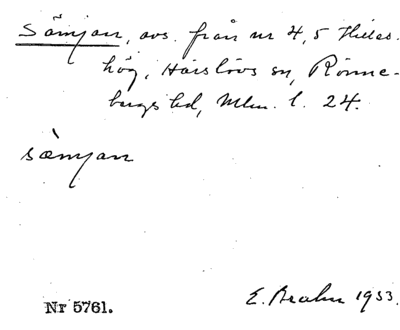 Sämjan, avs. från nr 4, 5 Hilles-
hög, Härslövs sn, Rönne-
bergs hd, Mlm. l. 24.
sæ̀mjan
Nr 5761. E. Brahn 1933.